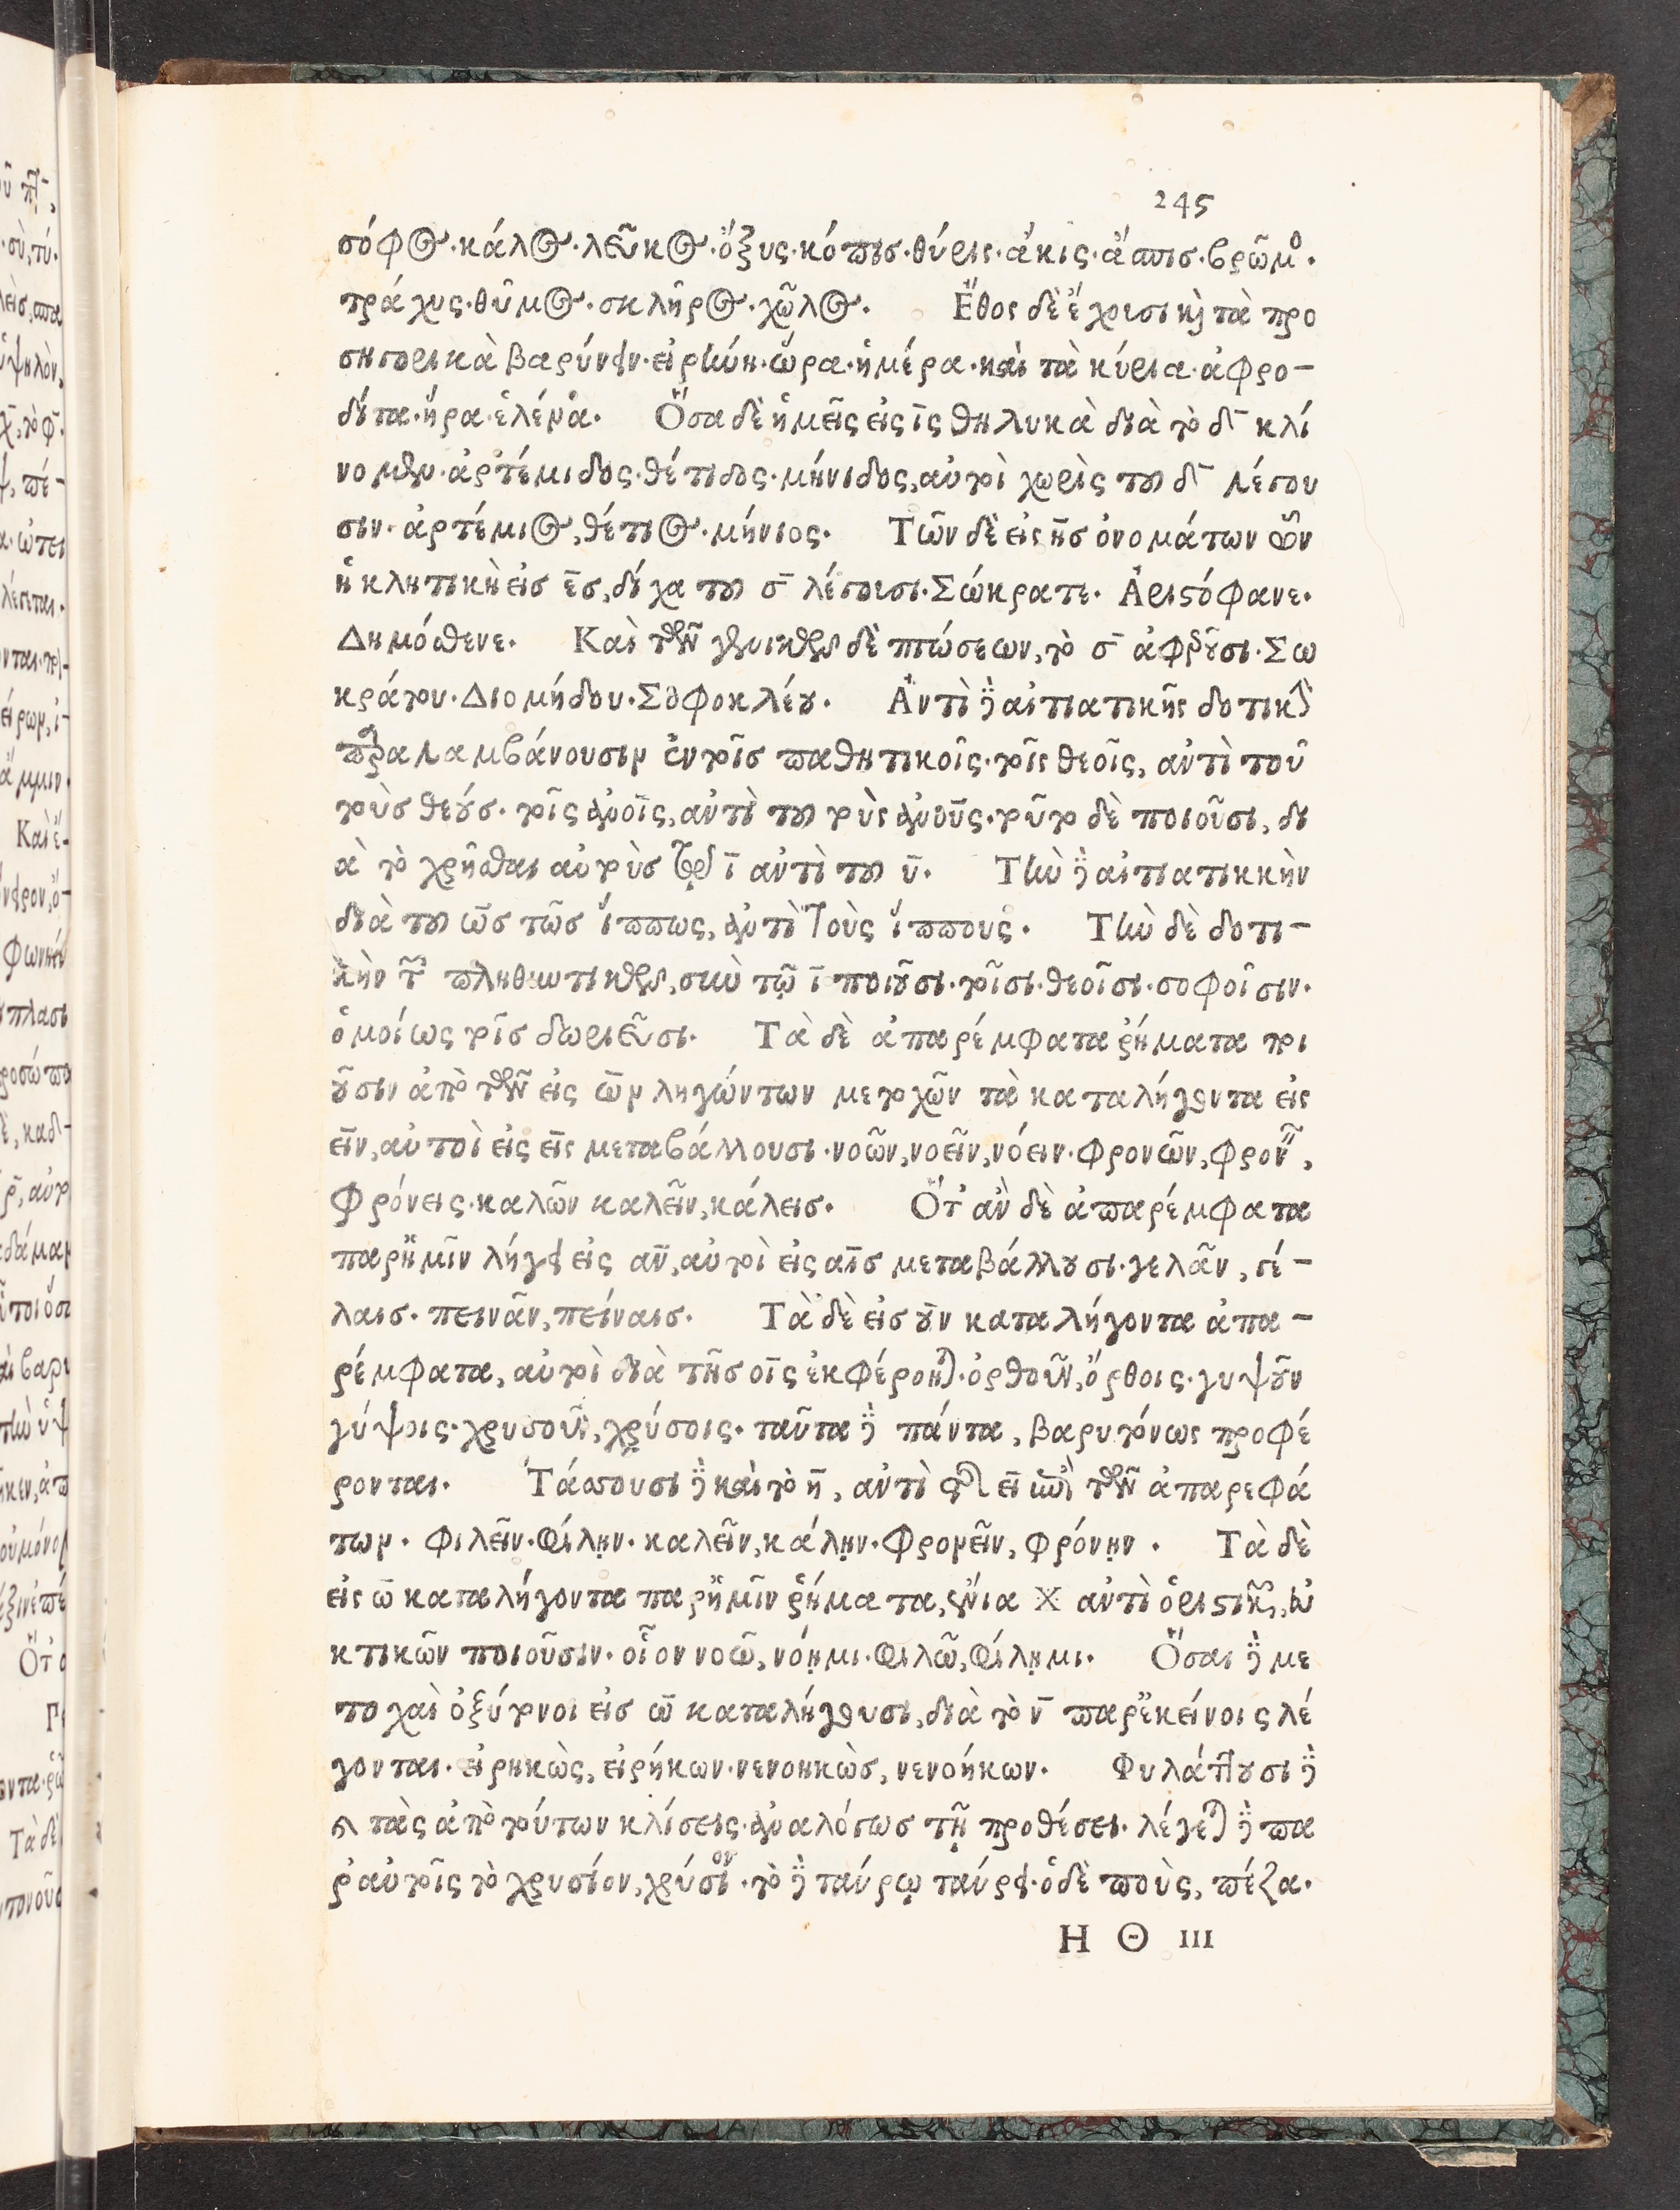 245
σόφος·κάλος·λεῦκος·ὄξυς·κόπις·θύρις·ἀκις·ἄσπις·βρῶμος·
τράχυς·θῦμος·σκλῆρος·χῶλος. Ἔθος δὲ ἔχουσι καὶ τὰ προ
σηγορικὰ βαρύνειν·εἰρήνη·ὥρα·ἡμέρα·καὶ τὰ κύρια·ἀφρο-
δίτα·ἥρα·ἑλένα. Ὅσα δὲ ἡμεῖς εἰς ῑς θηλυκὰ διὰ τὸ δ̄ κλί
νομεν·ἀρτέμιδος·θέτιδος·μήνιδος, αὐτοὶ χωρὶς τοῦ δ̄ λέγου
σιν·ἀρτέμιος, θέτιος·μήνιος. Τῶν δὲ εἰς ης ὀνομάτων ὧν
ἡ κλητικὴ εἰς ε̄ς, δίχα τοῦ σ̄ λέγουσι·Σώκρατε. Ἀριστόφανε.
Δημόσθενε. Καὶ τῶν γενικῶν δὲ πτώσεων, τὸ σ̄ ἀφαιροῦσι·Σω
κράτου·Διομήδου·Σοφοκλέου. Ἀντὶ δὲ αἰτιατικῆς δοτικὴν
παραλαμβάνουσιν ἐν τοῖς παθητικοῖς·τοῖς θεοῖς, αὐτὶ τοῦ
τοὺς θεούς·τοῖς ἀνοῖς, αὐτὶ τοῦ τοὺς ἀνοῦς·τοῦτο δὲ ποιοῦσι, δι
ὰ τὸ χρῆσθαι αὐτοὺς τῷ ῑ αὐτὶ τοῦ ῡ. Τὴν δὲ αἰτιατικκὴν
διὰ τοῦ ω̄ς τῶς ἵππως, ἀντὶ τοὺς ἵππους. Τὴν δὲ δοτι-
κὴν τῶν πληθυντικῶν, σὺν τῷ ῑ ποιοῦσι·τοῖσι·θεοῖσι·σοφοῖσιν.
ὁμοίως τοῖς δωριεῦσι. Τὰ δὲ ἀπαρέμφατα ῥήματα ποι
οῦσιν ἀπὸ τῶν εἰς ω̄ν ληγώντων μετοχῶν τὰ καταλήγοντα εἰς
εῖν, αὐτοὶ εἰς εῖς μεταβάλλουσι·νοῶν, νοεῖν, νόειν·φρονῶν, φρονεῖν,
φρόνεις·καλῶν καλεῖν, κάλεις. Ὅτ' ἂν δὲ ἀπαρέμφατα
παρ' ἡμῖν λήγει εἰς ᾱν, αὐτοὶ εἰς αῖς μεταβάλλουσι·γελᾶν, γέ-
λαις·πεινᾶν, πείναις. Τὰ δὲ εἰς οῦν καταλήγοντα ἀπα-
ρέμφατα, αὐτοὶ διὰ τῆς οῖς ἐκφέρονται·ὀρθοῦν, ὄρθοις·γυψοῦν
γύψοις·χρυσοῦν, χρύσοις·ταῦτα δὲ πάντα, βαρυτόνως προφέ
ρονται. Τάσσουσι δὲ καὶ τὸ η̄, αὐτὶ τῆς ε̄ι ἐπὶ τῶν ἀπαρεφά
των·φιλεῖν·φίλῃν·καλεῖν, κάλῃν·φρονεῖν, φρόνῃν. Τὰ δὲ
εἰς ω̄ καταλήγοντα παρ' ἡμῖν ῥήματα, ἔνια χ αὐτὶ ὁριστικῶν, εὐ
κτικῶν ποιοῦσιν·οἷον νοῶ, νόημι·φιλῶ, φίλημι. Ὅσαι δὲ με
τοχαὶ ὀξύτονοι εἰς ω̄ς καταλήγουσι, διὰ τὸ ν̄ παρ' ἐκείνοις λέ
γονται·εἰρηκὼς, εἰρήκων·νενοηκὼς, νενοήκων. Φυλάττουσι δὲ
καὶ τὰς ἀπὸ τούτων κλίσεις·ἀναλόγως τῇ προθέσει·λέγεται δὲ πα
ρ' αὐτοῖς τὸ χρυσίον, χρύσιον·τὸ δὲ ταύρῳ ταύρει·ὁ δὲ ποὺς, πέζα.
Η Θ III